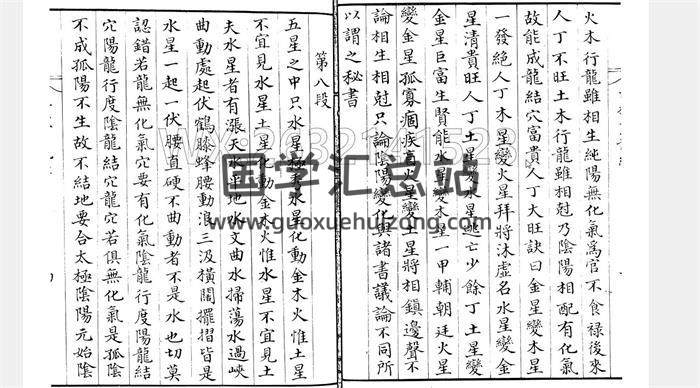 火木行龍雖相生純陽無化氣爲官不食禄後來
人丁不旺土木行龍雖相尅乃陰陽相配有化氣
故能成龍結穴富貴人丁大旺訣曰金星變木星
一發絕人丁木星變火星拜將沐虛名水星變金
星清貴旺人丁土星變水星逃亡少餘丁土星變
金星巨富生賢能水星變木星一甲輔朝廷火星
變金星孤寡痼疾火星變土星將相鎮邊聲不
論相生相尅只論陰陽變化與諸書議論不同所
以謂之秘書
第八段
五星之中只水星水星化動金木火惟土星
不宜見水星土星化動金木火惟水星不宜見土
夫水星者有漲天水平地水文曲水掃蕩水過峽
曲動處起伏鶴膝蜂腰動浪三汲橫闊擺摺皆是
水星一起一伏腰直硬不曲動者不是水也切莫
認錯若龍無化氣穴要有化氣陰龍行度陽龍結
穴陽龍行度陰龍結穴若俱無化氣是孤陰
不成孤陽不生故不結地要合太極陰陽元始陰
国学汇总站
www.guoxuehuizong.com